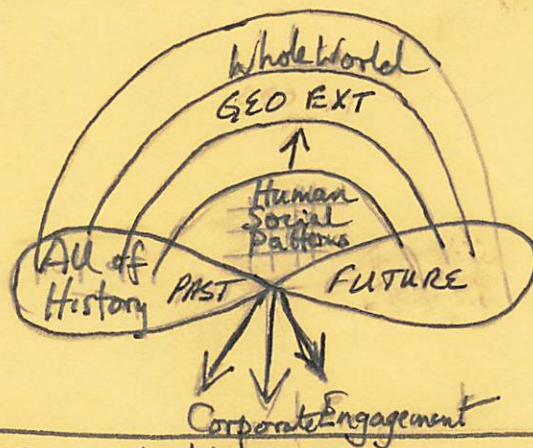 Whole World
GEO EXT
Human
Social
Patterns
All of
History
PAST
FUTURE
Corporate Engagement